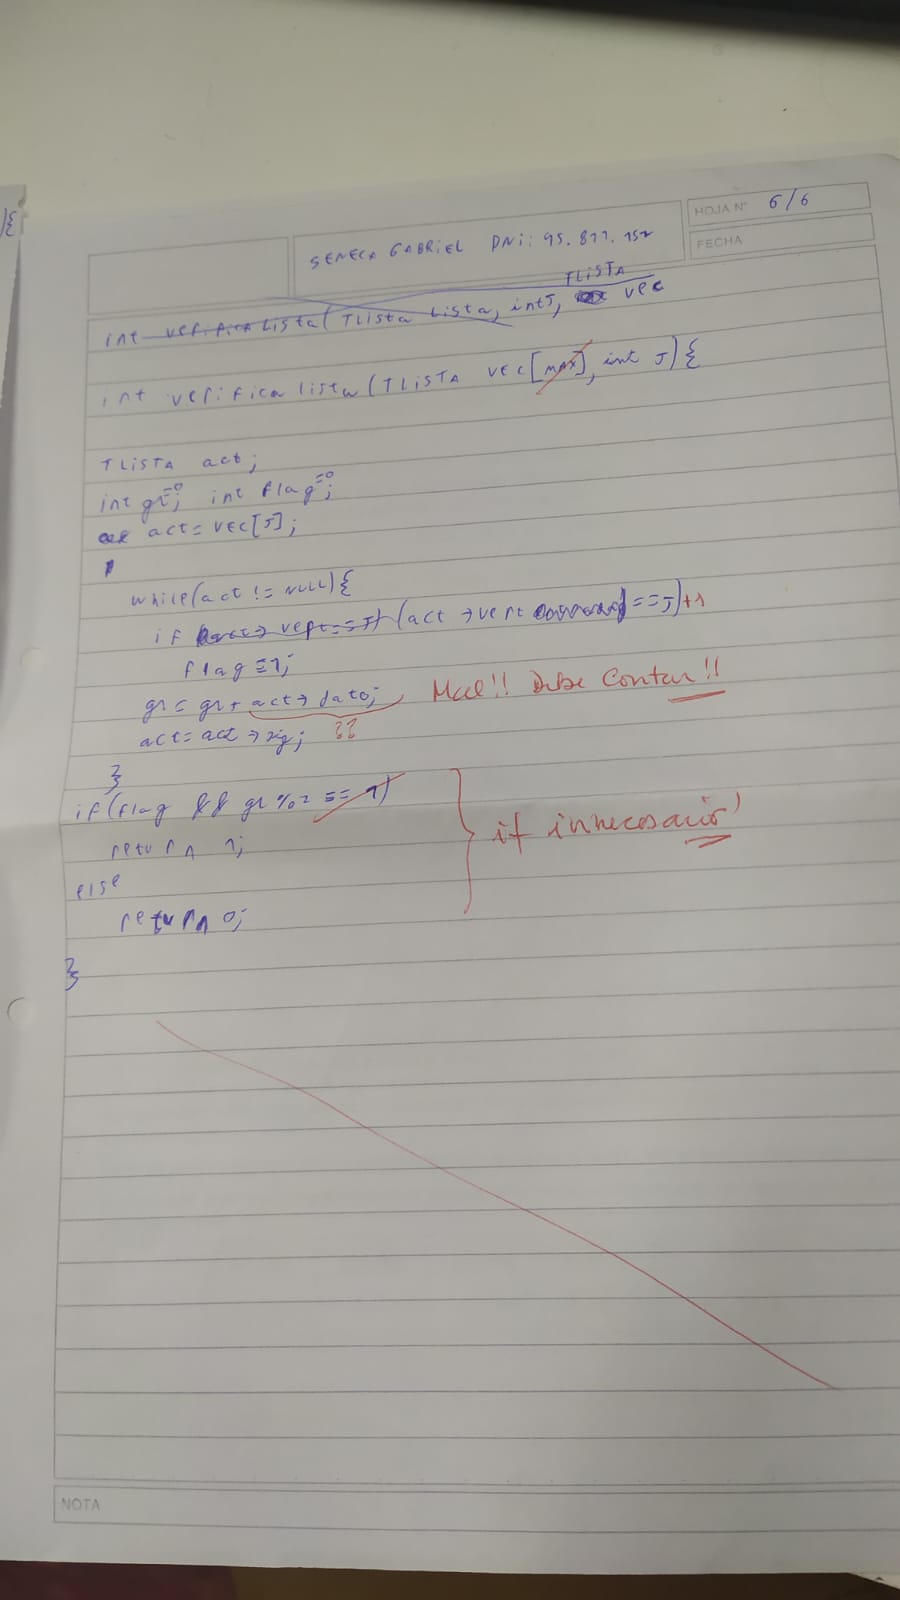 HOJA N° 6/6
SENECA GABRIEL DNI: 95.877.152
FECHA
TLISTA
int verifica Lista( TLista Lista, int J, vec
int verifica lista (TLISTA vec[MAX], int J) {
TLISTA act;
int gr=0; int flag=0;
act = vec[J];
while(act != NULL) {
if (act → vert == J) +1
flag = 1;
gr = gr + act → dato; Mal!! Debe Contar!!
act = act → sig; ??
}
if (flag && gr % 2 == 1)
return 1; if innecesario!
else
return 0;
}
NOTA